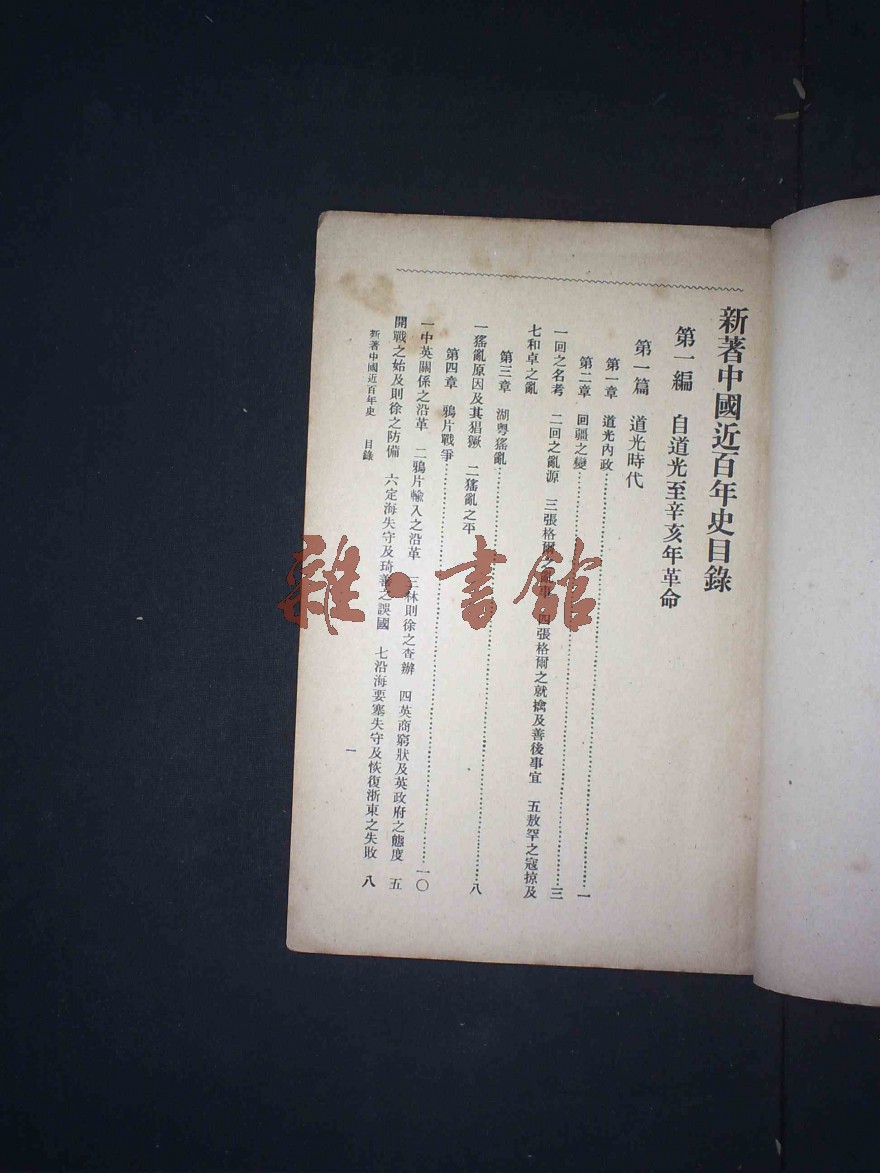 新著中國近百年史目錄
第一編 自道光至辛亥年革命
第一篇 道光時代
第一章 道光內政……一
第二章 回疆之變……三
一回之名考 二回之亂源 三張格爾之 四張格爾之就擒及善後事宜 五敖罕之寇掠及
七和卓之亂
第三章 湖粵猺亂……八
一猺亂原因及其猖獗 二猺亂之平
第四章 鴉片戰爭……一〇
一中英關係之沿革 二鴉片輸入之沿革 三林則徐之查辦 四英商窮狀及英政府之態度 五
開戰之始及則徐之防備 六定海失守及琦善之誤國 七沿海要塞失守及恢復浙東之失敗 八
新著中國近百年史 目錄
一
雜·書館